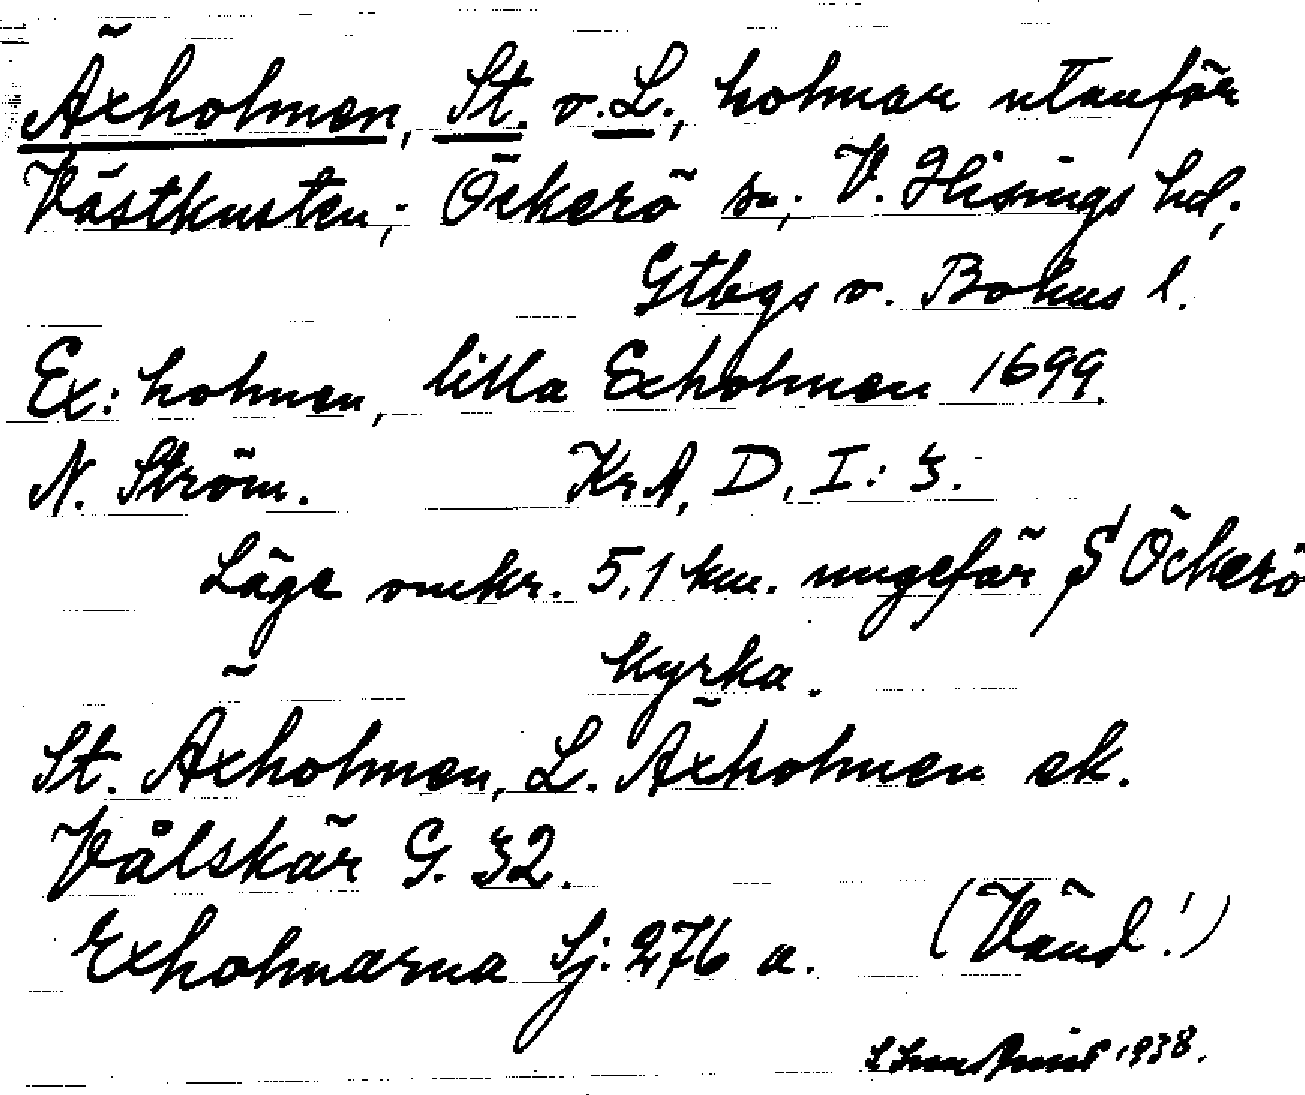 Äxholmen, St. o. L., holmar utanför
Västkusten; Öckerö sn; V. Hisings hd;
Gtbgs o. Bohus l.
Ex: holmen, lilla Exholmen 1699.
N. Ström. Kr.A, D, I: 3.
Läge omkr. 5,1 km. ungefär S Öckerö
kyrka.
St. Äxholmen, L. Äxholmen ek.
Vålskär G. 32.
Exholmarna Sj. 276 a. (Vänd!)
1938.